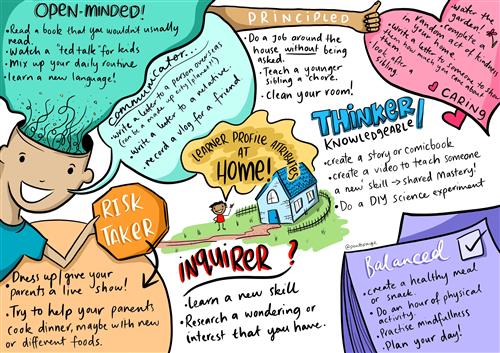 OPEN-MINDED!
•Read a book that you wouldn't usually
read.
•Watch a 'ted talk' for kids
•Mix up your daily routine
•learn a new language!
Communicator...
•write a letter to a person overseas
(can be a made up city/planet!!)
•write a letter to a relative
•record a vlog for a friend
PRINCIPLED
•Do a job around the
house without being
asked.
•Teach a younger
sibling a chore.
•Clean your room!
•water the
garden
•Do a
random act of
kindness
•Write a letter
to someone to show
them how much you care about
them
•look after a
sibling.
CARING
THINKER/
KNOWLEDGEABLE
•create a story or comicbook
•create a video to teach someone
a new skill → shared Mastery!
•Do a DIY Science experiment
LEARNER PROFILE ATTRIBUTES
AT
HOME!
RISK
TAKER
•Dress up/give your
parents a live 'show'!
•Try to help your parents
cook dinner, maybe with new
or different foods.
INQUIRER?
•Learn a new skill
•Research a wondering or
interest that you have.
Balanced
•create a healthy meal
or snack.
•Do an hour of physical
activity.
•Practise mindfulness
•Plan your day!